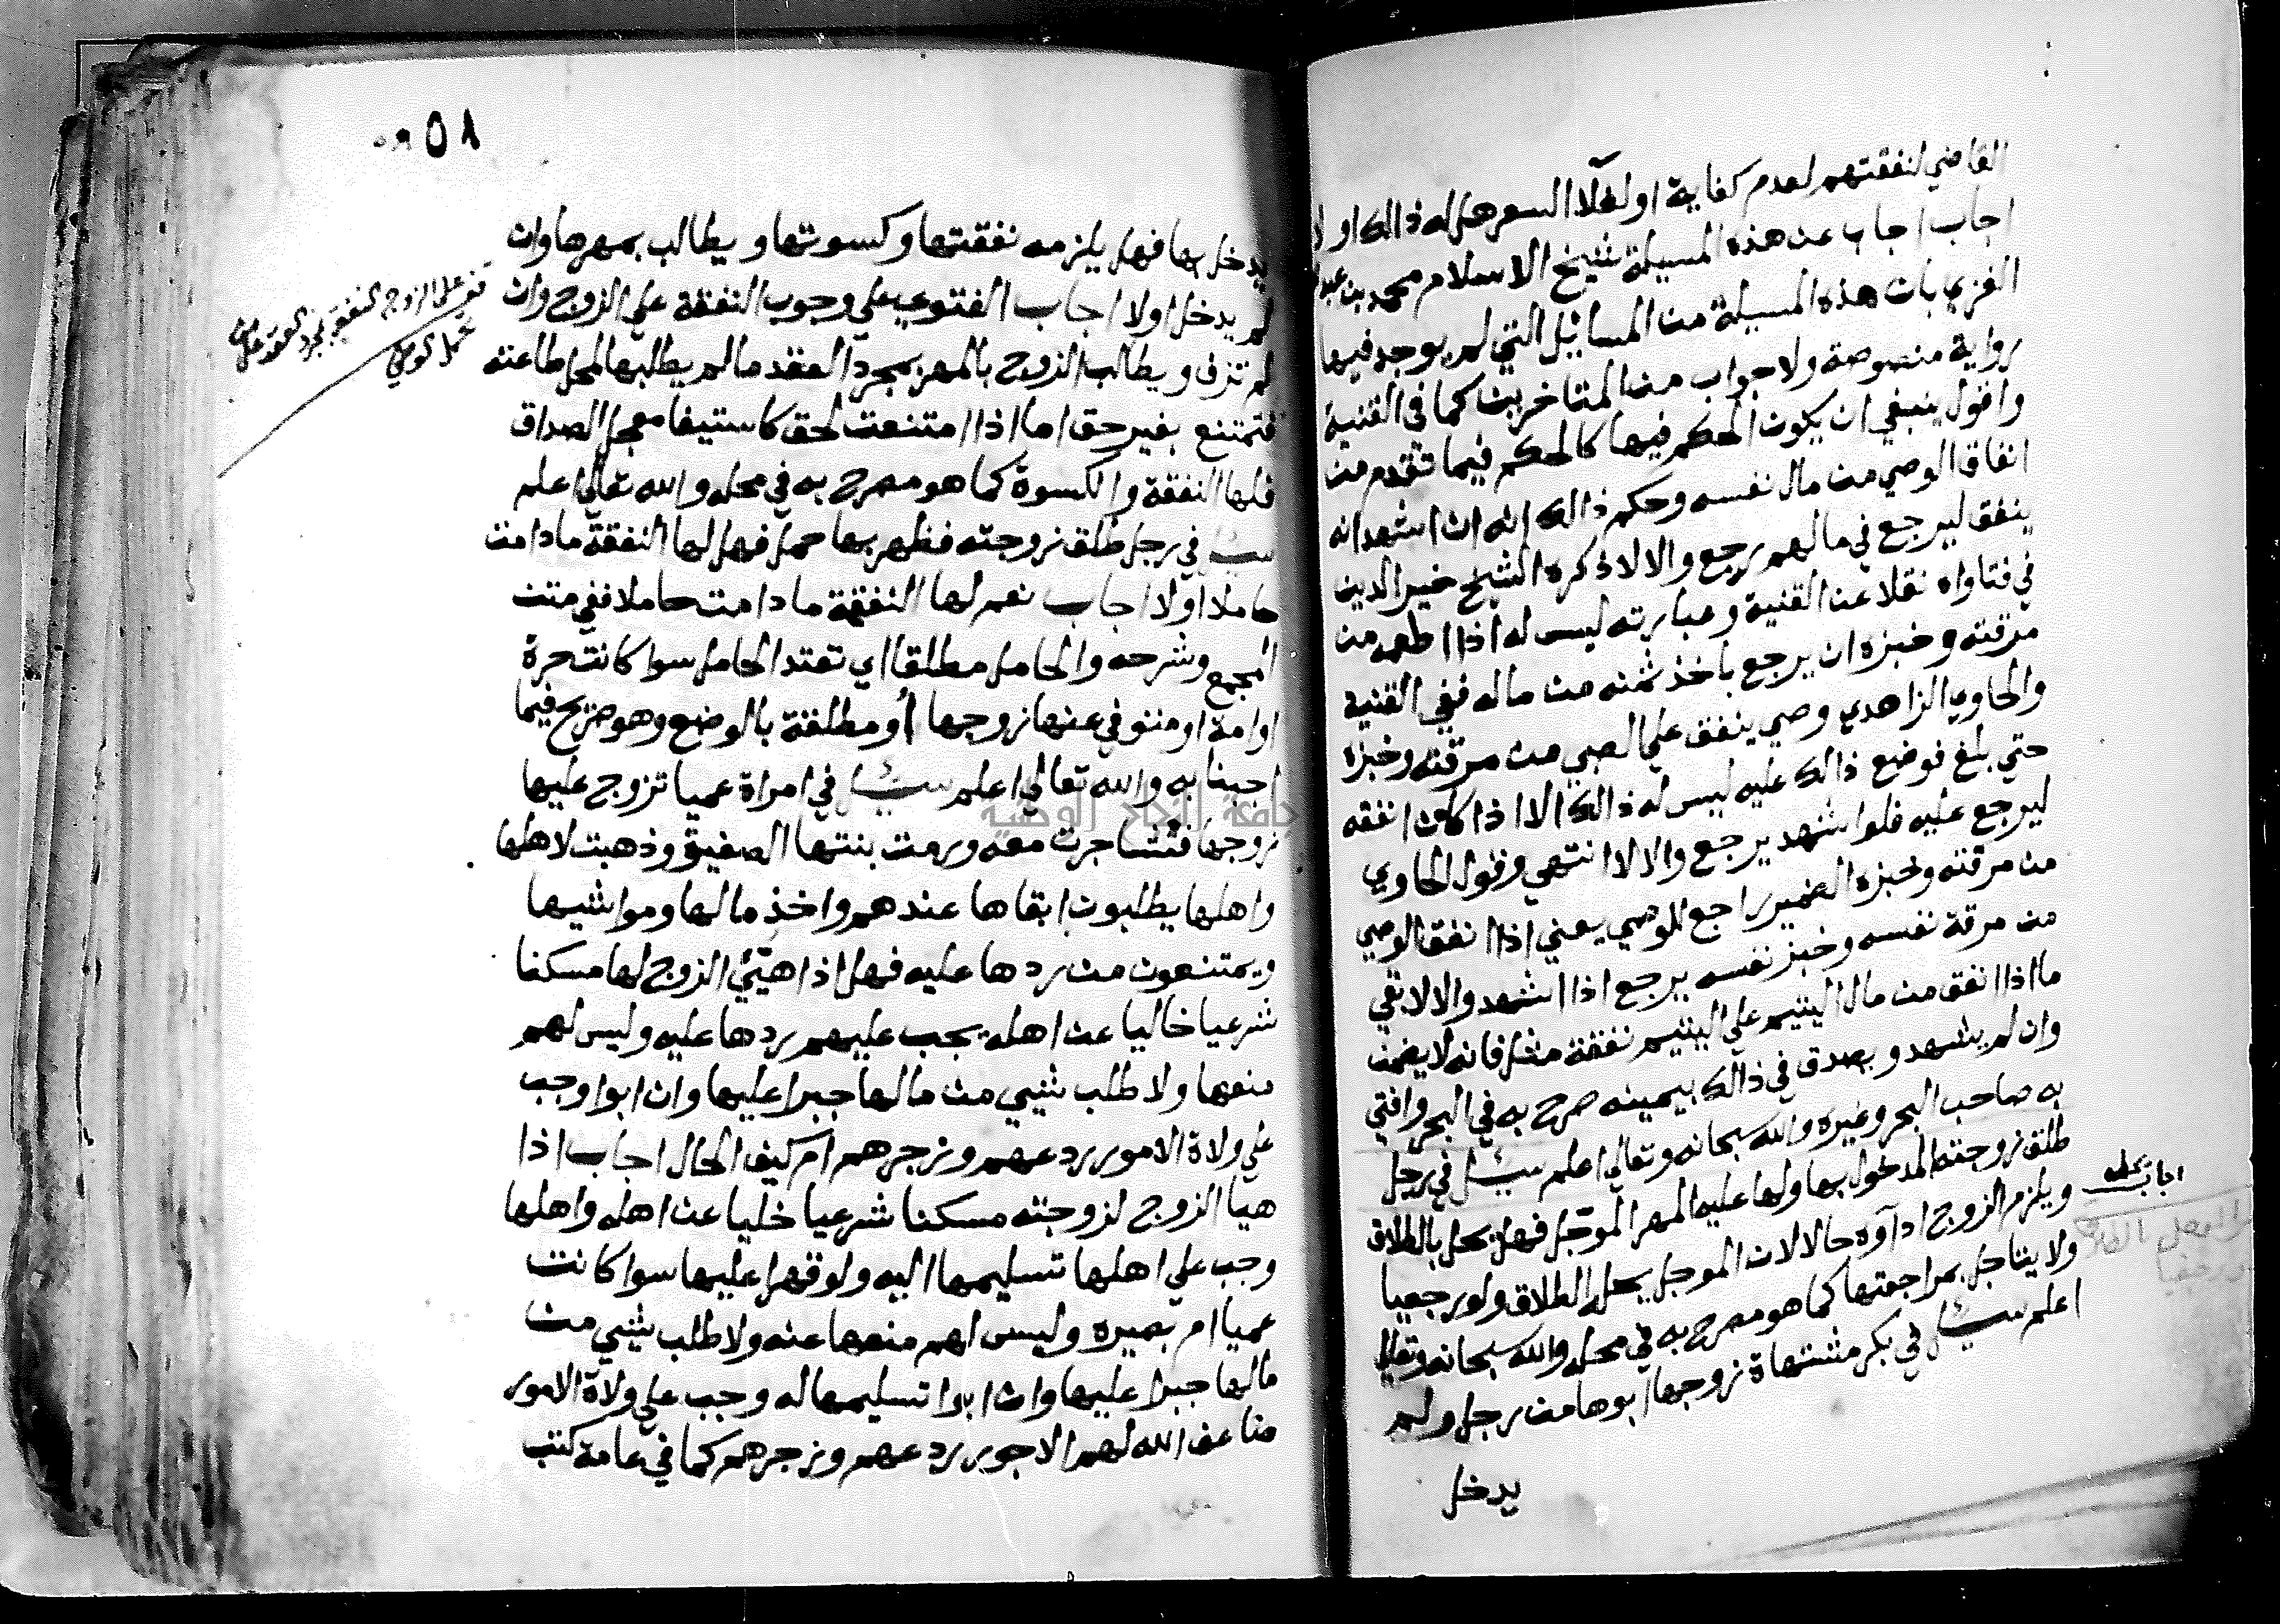 القاضي لنفقتهم لعدم كفاية او لغلآ السعر هل له ذالك او لا
اجاب اجاب عن هذه المسيلة شيخ الاسلام محمد بن عبد
الغزي بان هذه المسيلة من المسائل التي لم يوجد فيها
رواية منصوصة ولا جواب من المتاخرين كما في القنية
واقول ينبغي ان يكون الحكم فيها كالحكم فيما تقدم من
انفاق الوصي من مال نفسه وحكم ذالك انه ان اشهد انه
ينفق ليرجع في مالهم يرجع والا لا ذكره الشيخ خير الدين
في فتاواه نقلا عن القنية وعبارته ليس له اذا اطعمه من
مرقته وخبزه ان يرجع باخذ ثمنه من ماله ففي القنية
والحاوي الزاهدي وصي ينفق علي الصبي من مرقته وخبزه
حتي بلغ فوضع ذالك عليه ليس له ذالك الا اذا كان انفقه
ليرجع عليه فلو اشهد يرجع والا لا انتهي وقول الحاوي
من مرقته وخبزه الضمير راجع للوصي يعني اذا انفق الوصي
من مرقة نفسه وخبز نفسه يرجع اذا اشهد والا لا بقي
ما اذا انفق من مال اليتيم علي اليتيم نفقة مثله فانه لا يضمن
وان لم يشهد ويصدق في ذالك بيمينه صرح به في البحر وافتي
به صاحب البحر وغيره والله سبحانه وتعالي اعلم سئل في رجل
طلق زوجته المدخول بها ولها عليه المهر الموجل فهل يحل بالطلاق
ويلزم الزوج ادآوه حالا لان الموجل يحل بالطلاق ولو رجعيا
ولا يتاجل بمراجعتها كما هو مصرح به في محله والله سبحانه وتعالي
اعلم سئل في بكر مشتهاة زوجها ابوها من رجل ولم
يدخل
اجاب يحل
٥٨
يدخل بها فهل يلزمه نفقتها وكسوتها ويطالب بمهرها وان
لم يدخل اولا اجاب الفتوي علي وجوب النفقة علي الزوج وان
لم تزف ويطالب الزوج بالمهر بمجرد العقد ما لم يطلبها لمحل طاعته
فتمتنع بغير حق اما اذا امتنعت لحق كاستيفا معجل الصداق
فلها النفقة والكسوة كما هو مصرح به في محله والله تعالي اعلم
سئل في رجل طلق زوجته فظهر بها حمل فهل لها النفقة ما دامت
حاملا اولا اجاب نعم لها النفقة ما دامت حاملا ففي متن
المجمع وشرحه والحامل مطلقا اي تعتد الحامل سوا كانت حرة
او امة او متوفي عنها زوجها أو مطلقة بالوضع وهو صريح فيما
اجبنا به والله تعالي اعلم سئل في امراة عميا تزوج عليها
زوجها فتشاجرت معه ورمت بنتها الصغيرة وذهبت لاهلها
واهلها يطلبون ابقاها عندهم واخذ مالها ومواشيها
ويمتنعون من ردها عليه فهل اذا هيّئ الزوج لها مسكنا
شرعيا خاليا عن اهله يجب عليهم ردها عليه وليس لهم
منعها ولا طلب شيي من مالها جبرا عليها وان ابوا وجب
علي ولاة الامور ردعهم وزجرهم ام كيف الحال اجاب اذا
هيا الزوج لزوجته مسكنا شرعيا خليا عن اهله واهلها
وجب علي اهلها تسليمها اليه ولو قهرا عليها سوا كانت
عميا ام بصيره وليس لهم منعها عنه ولا طلب شيي من
مالها جبرا عليها وان ابوا تسليمها له وجب علي ولاة الامور
ضاعف الله لهم الاجور ردعهم وزجرهم كما في عامة كتب
علي الزوج النفقة بمجرد العقد
جامعة النجاح الوطنية